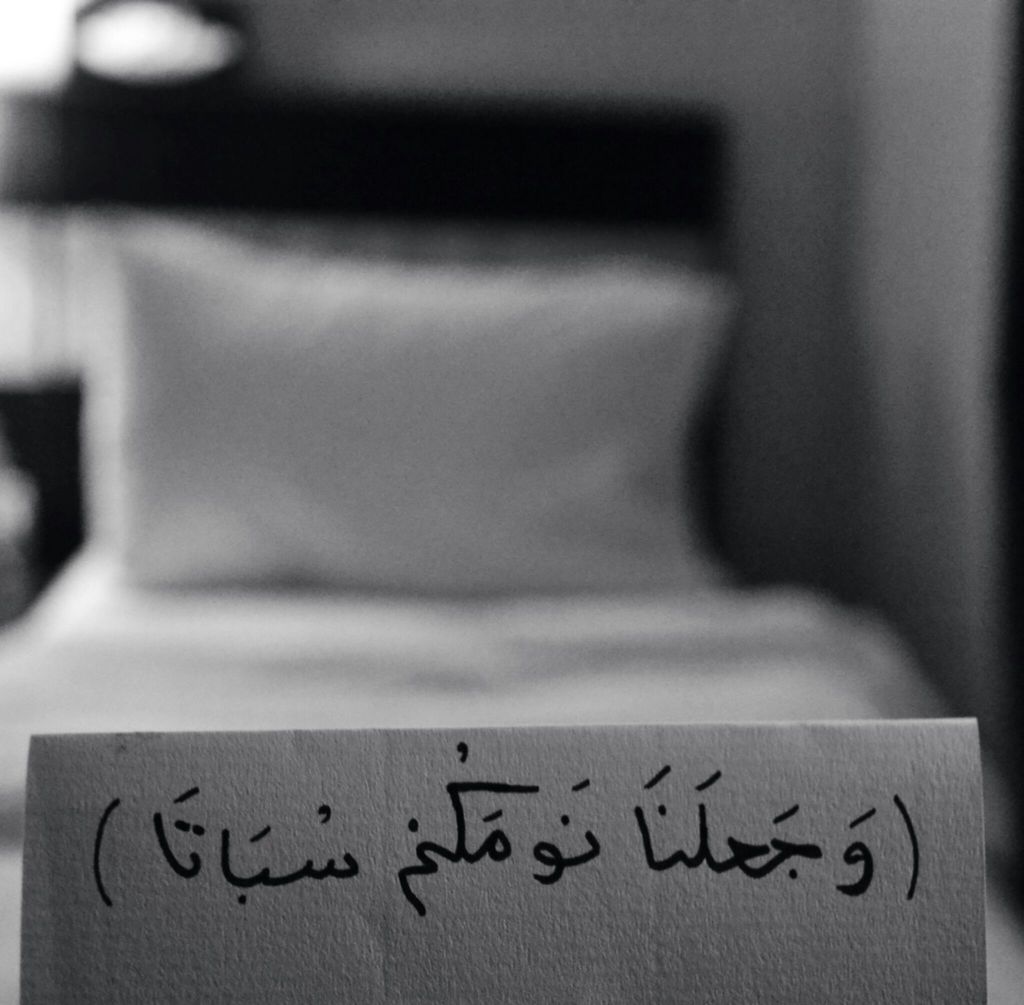 (وَجَعلَنَا نَومَكُم سُبَاتَا)